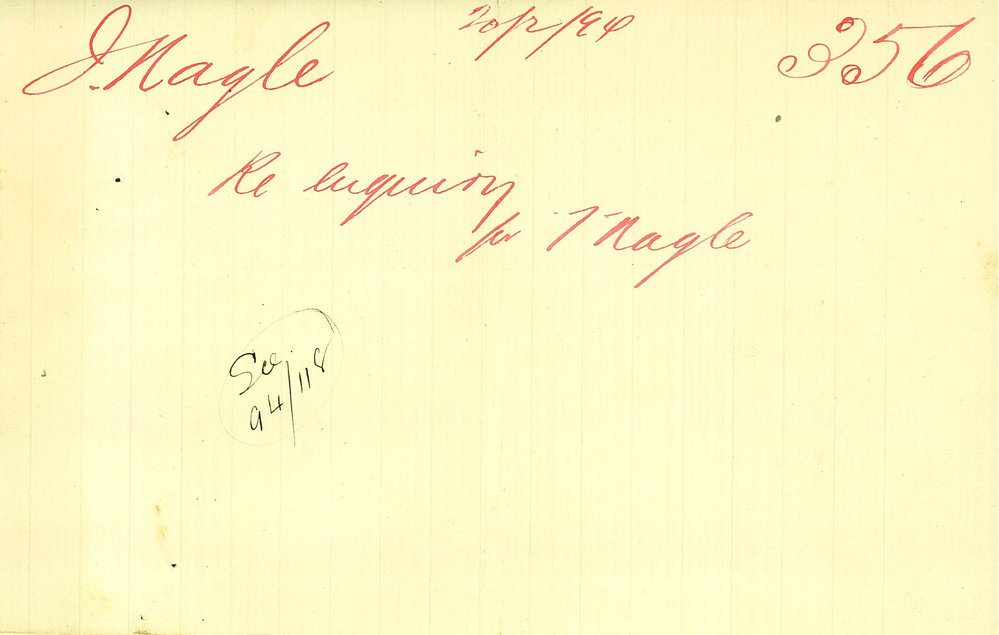 J. Nagle 20/2/94 356
Re enquiry
for T Nagle
See
94/118